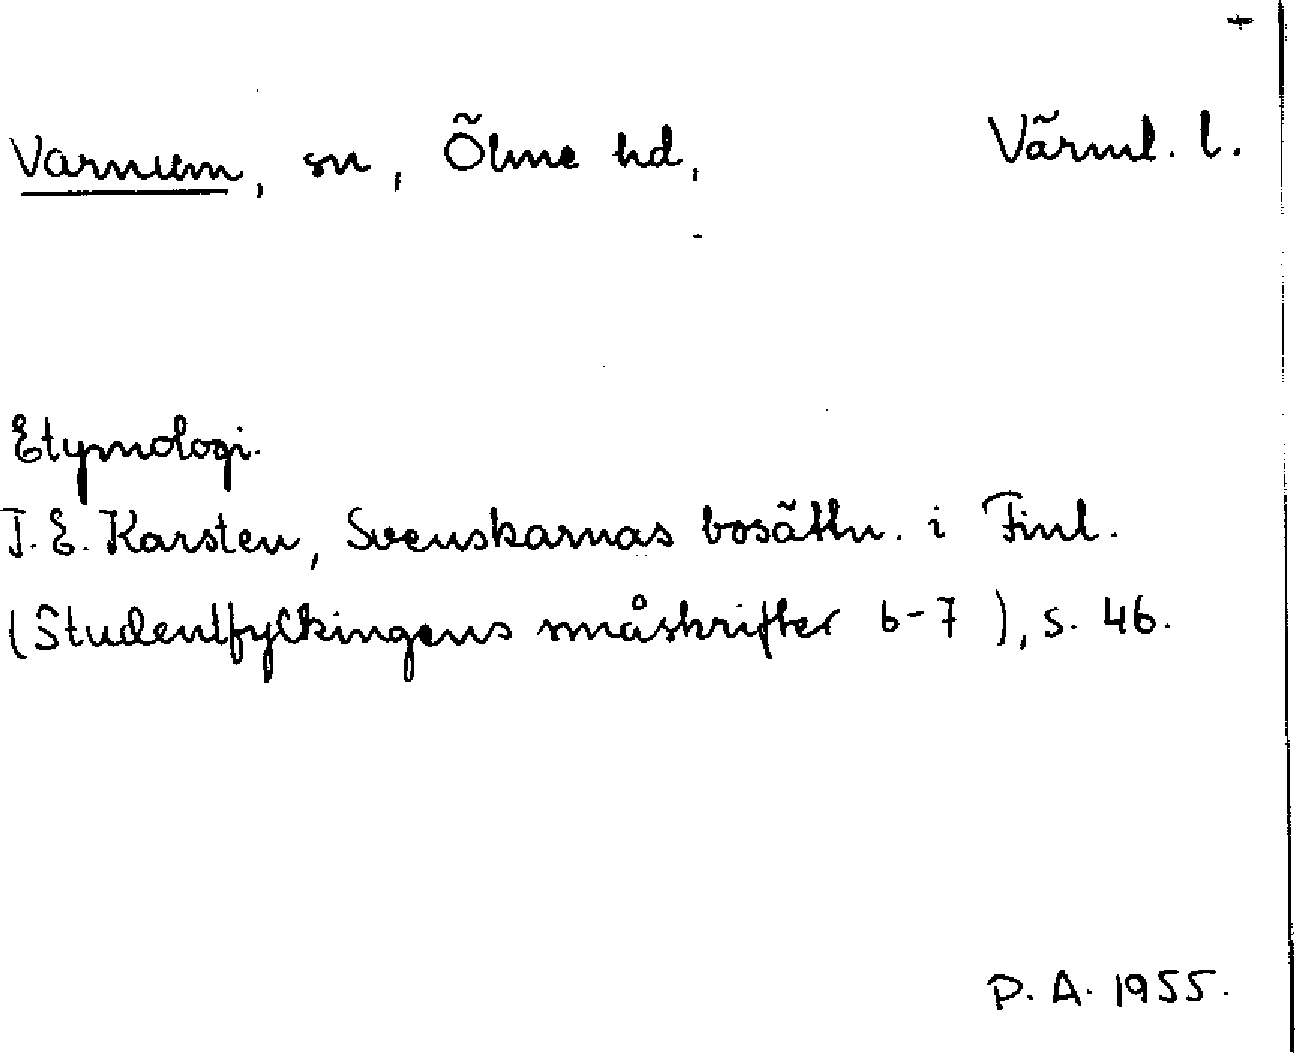 +
Varnum, sn, Õlme hd, Värml. l.
Etymologi.
T. E. Karsten, Svenskarnas bosättn. i Finl.
(Studentfylkingens småskrifter 6-7), s. 46.
P. A. 1955.